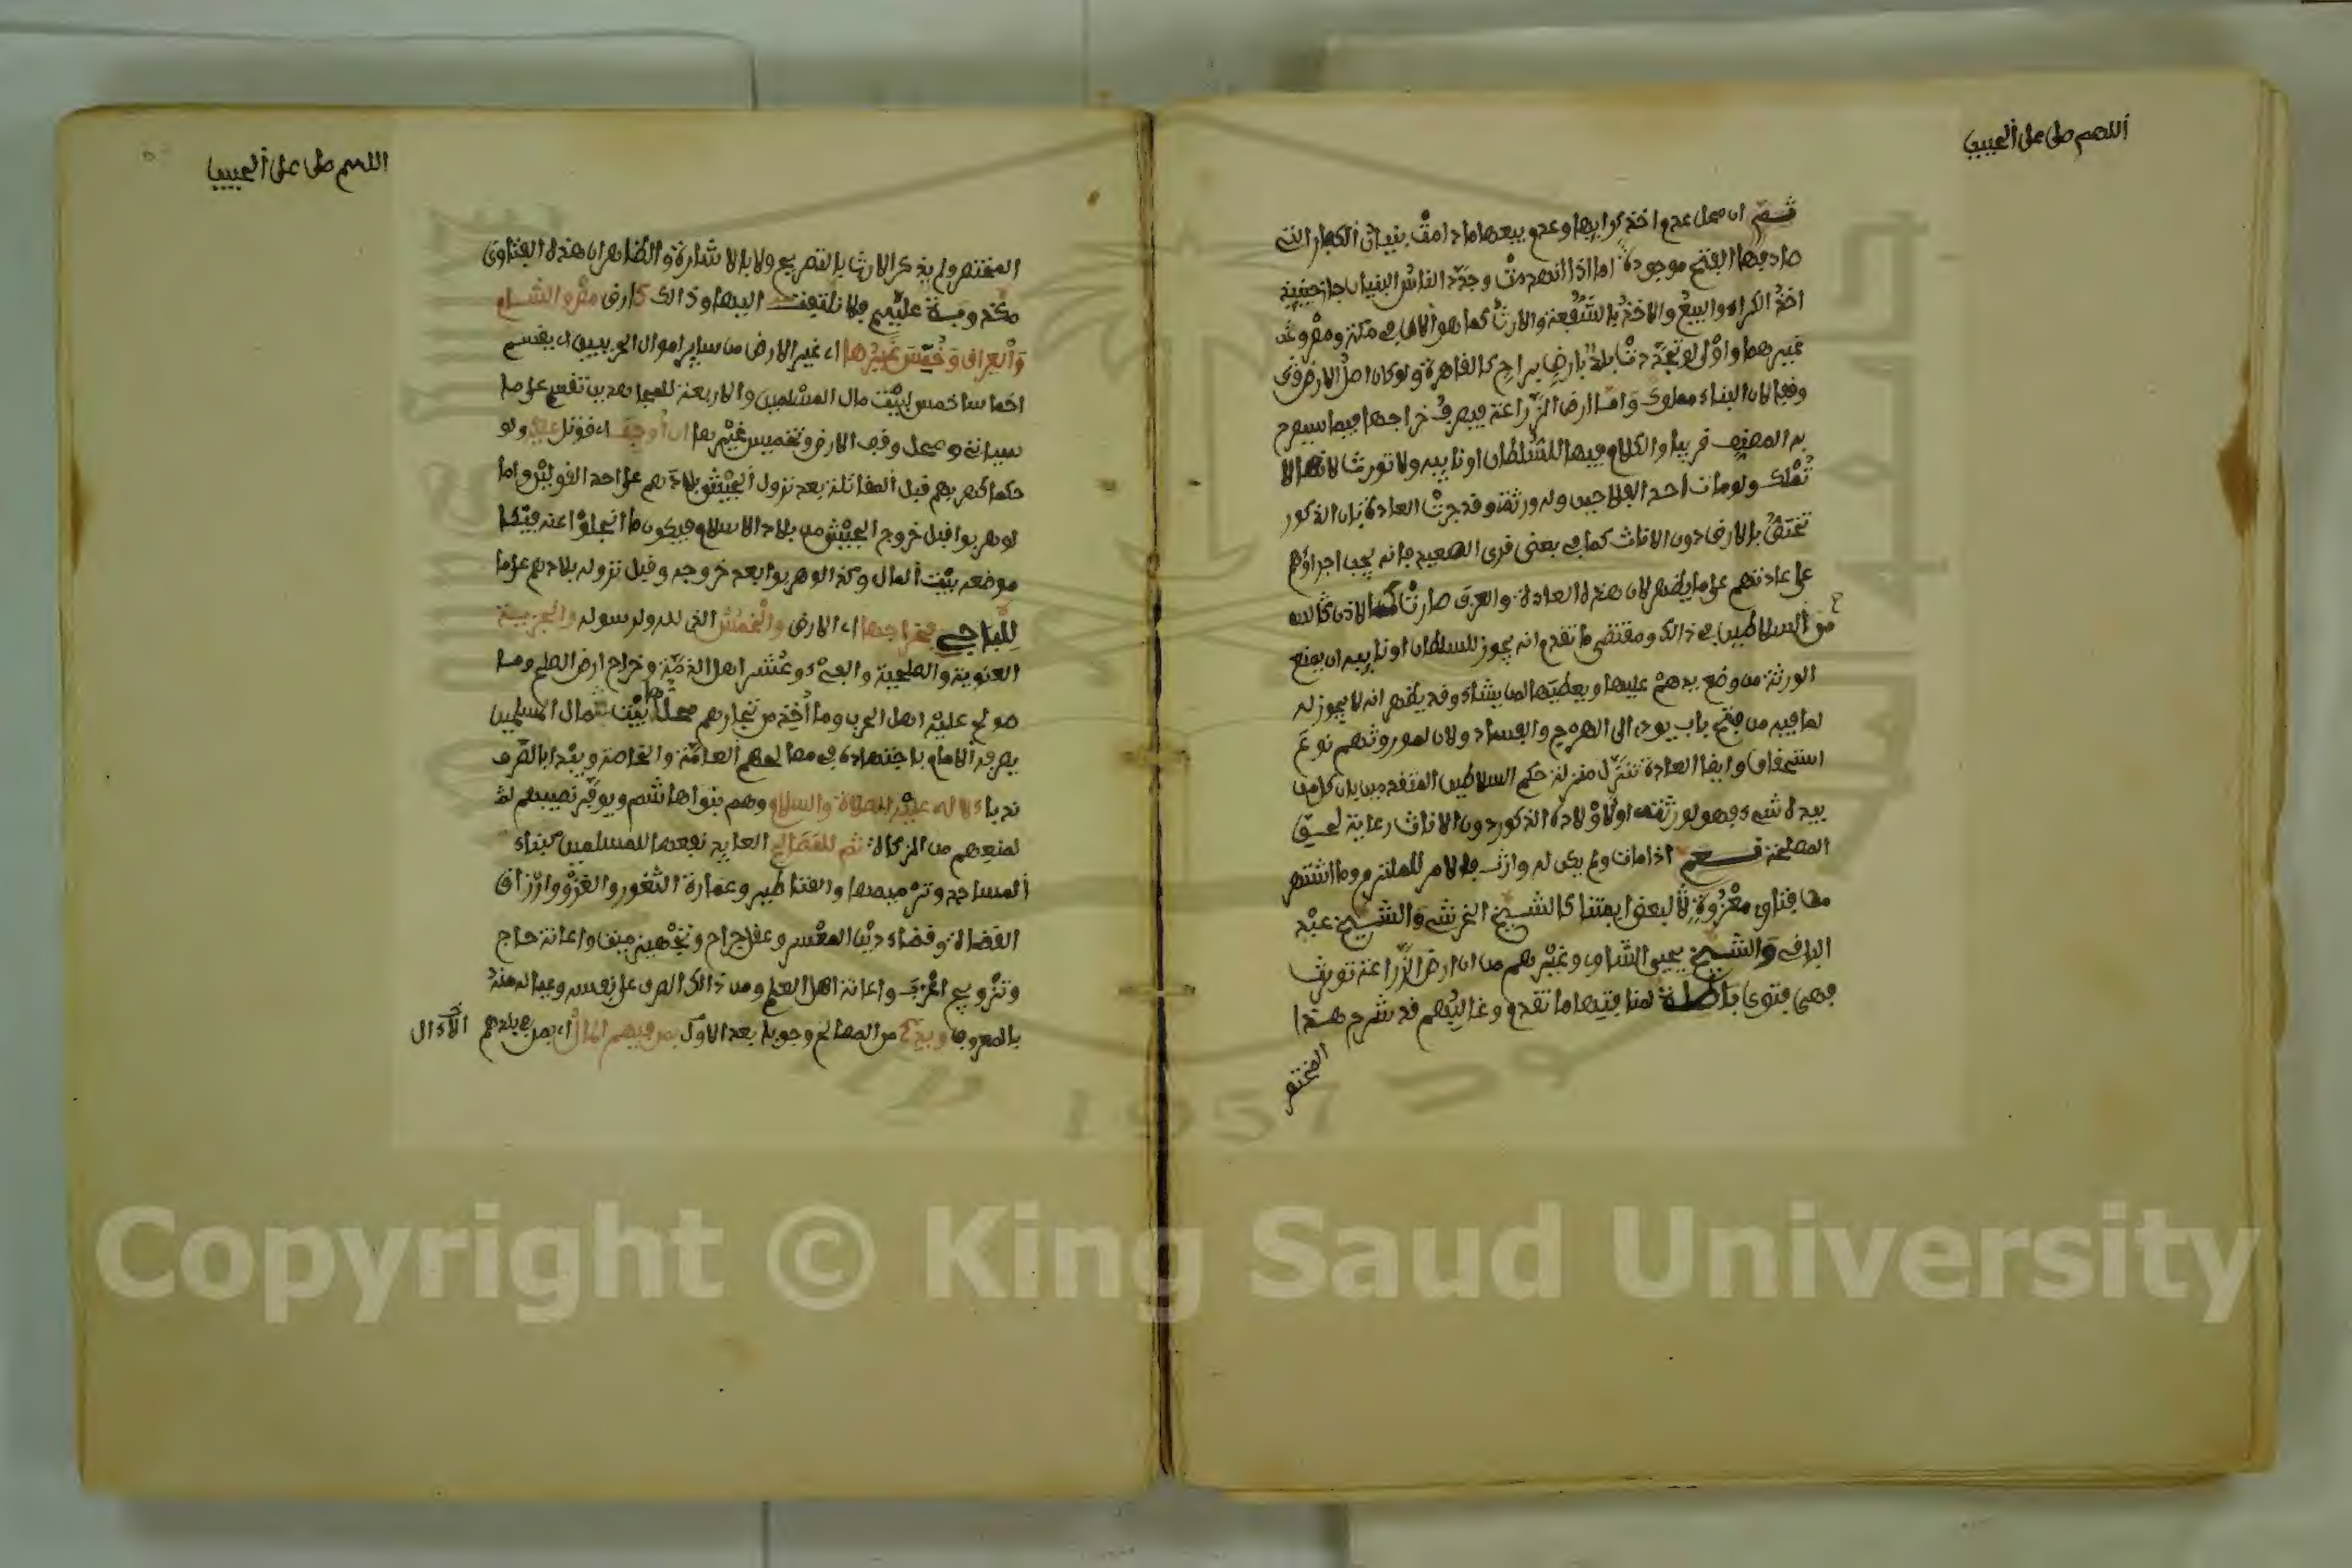 اللهم صل على الحبيب
قسم ان محل عدم اخذ كرايها وعدم بيعها ما دامت بنيان الكفار التي
صادفها الفتح موجودة اما اذا انهدمت وجدد الناس البنيان جاز حينيذ
اخذ الكراء والبيع والاخذ بالشفعة والارث كما هو الان في مكة ومصر وعد
غيرهما واول لو تجددت بلد بارض براح كالقاهرة ولو كان اصل الارض وقى
وقفا لان البناء مملوك واما ارض الزراعة فيصرف خراجها فيما سيصرح
به المصنف قريبا والكلام فيها للسلطان او نايبه ولا تورث لانها لا
تملك ولو مات احد الفلاحين وله ورثة وقد جرت العادة بان الذكور
تختص بالارض دون الاناث كما في بعض قرى الصعيد فانه يجب اجراؤهم
على عادتهم على ما يظهر لان هذه العادة والعرف صارت كالاذن
من السلاطين في ذالك ومقتضى ما تقدم انه يجوز للسلطان او نايبه ان يمنع
الورثة من وضع يدهم عليها ويعطيها لمن يشاء وقد يظهر انه لا يجوز له
لما فيه من فتح باب يودي الى الهرج والفساد ولان لموروثهم نوع
استحقاق وايضا العادة تنزل منزلة حكم السلاطين المتقدمين بان كل من
بيده شيء فهو لورثته او لاولاده الذكور دون الاناث رعاية لحق
المصلحة نعم اذا مات ولم يكن له وارث فالامر للملتزم وما اشتهر
من فتاوى معزوة لبعض ايمتنا كالشيخ الخرشي والشيخ عبد
الباقي والشيخ يحيى الشاوي وغيرهم من ان ارض الزراعة تورث
فهي فتوى باطلة لمنافيتها ما تقدم وغالبهم قد شرح هذا
المختصر
اللهم صل على الحبيب
المختصر ولم يذكر الارث بالتصريح ولا بالاشارة والظاهر ان هذه الفتاوى
مكذوبة عليهم فلا نلتفت اليها وذالك كارض مصر والشام
والعراق وخمس غيرها اي غير الارض من ساير اموال الحربيين اي يقسم
اخماسا خمس لبيت مال المسلمين والاربعة للمجاهدين تقسم على ما
سياتي ومحل وقف الارض وتخميس غيرها ان اوجف اي قوتل عليه ولو
حكما كهربهم قبل المقاتلة بعد نزول الجيش بلادهم على احد القولين واما
لو هربوا قبل خروج الجيش من بلاد الاسلام فيكون ما انجلوا عنه فيئا
موضعه بيت المال وكذا لو هربوا بعد خروجه وقبل نزوله بلادهم على ما
للباجي فخراجها اي الارض والخمس الذي لله ولرسوله والجزية
العنوية والصلحية والفيء وعشر اهل الذمة وخراج ارض الصلح وما
صولح عليه اهل الحرب وما اخذ من تجارهم محلها بيت مال المسلمين
يصرفه الامام باجتهاده في مصالحهم العامة والخاصة ويبدا بالصرف
ندبا لاله عليه الصلاة والسلام وهم بنوا هاشم ويوفر نصيبهم
لمنعهم من الزكاة ثم للمصالح العايد نفعها للمسلمين كبناء
المساجد وترميمها والقناطير وعمارة الثغور والغزو وارزاق
القضاة وقضاء دين المعسر وعقل جراح وتجهيز ميت واعانة حاج
وتزويج اعزب واعانة اهل العلم ومن ذالك الصرف على نفسه وعياله منه
بالمعروف وبدئ من المصالح وجوبا بعد الاول بمن فيهم المال اي بمن في بلدهم